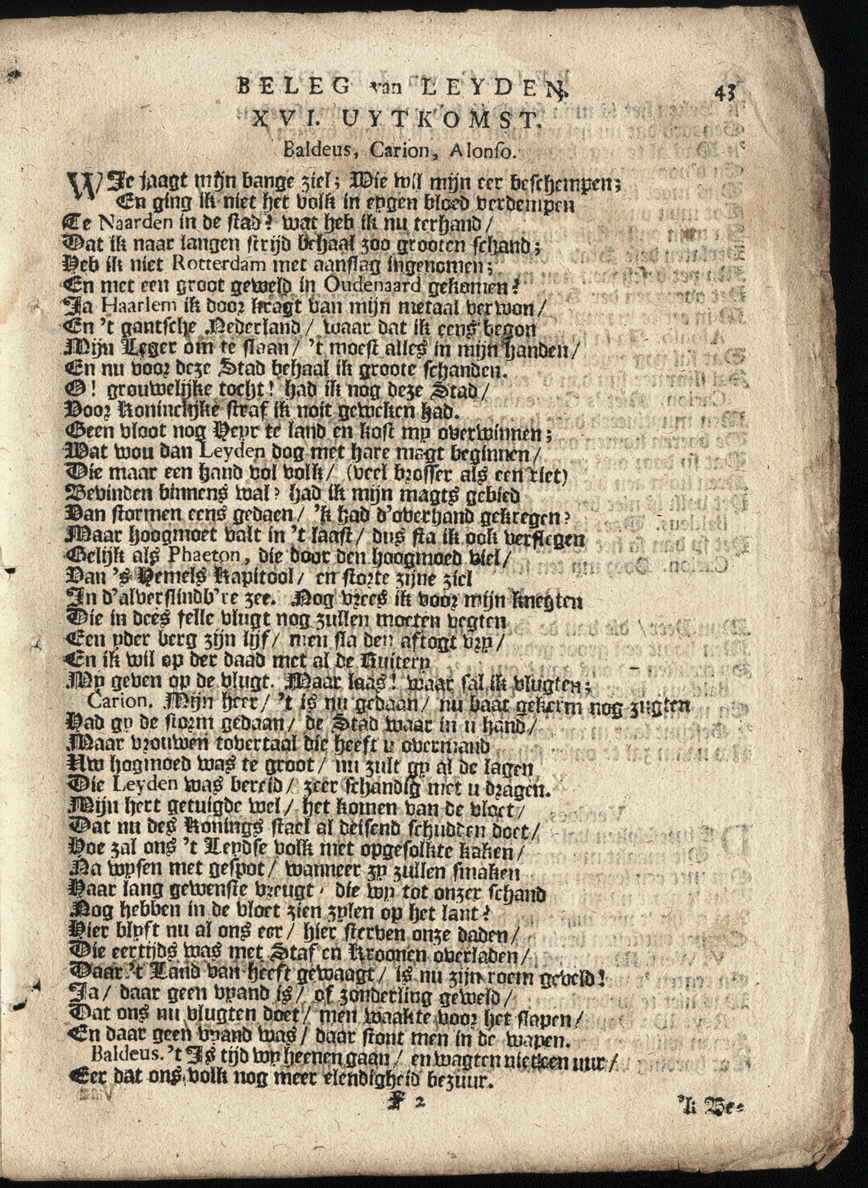 BELEG van LEYDEN. 43
XVI. UYTKOMST.
Baldeus, Carion, Alonso.
WIe jaagt mijn bange ziel; Wie wil mijn eer beschempen;
En ging ik niet het volk in eygen bloed verdempen
Te Naarden in de stad? wat heb ik nu terhand/
Dat ik naar langen strijd behaal zoo grooten schand;
Heb ik niet Rotterdam met aanslag ingenomen;
En met een groot geweld in Oudenaard gekomen?
Ja Haarlem ik door kragt van mijn metaal verwon/
En 't gantsche Nederland/ waar dat ik eens begon
Mijn Leger om te slaan/ 't moest alles in mijn handen/
En nu voor deze Stad behaal ik groote schanden.
O! grouwelijke tocht! had ik nog deze Stad/
Voor Koninckijke straf ik noit geweken had.
Geen vloot nog Heyr te land en kost my overwinnen;
Wat wou dan Leyden dog met hare magt beginnen/
Die maar een hand vol volk/ (veel brosser als een riet)
Bevinden binnens wal? had ik mijn magts gebied
Van stormen eens gedaen/ 'k had d'overhand gekregen?
Maar hoogmoet valt in 't laast/ dus sta ik ook verslegen
Gelijk als Phaeton, die door den hoogmoed viel/
Van 's Hemels Kapitool/ en storte zijne ziel
In d'alverslindb're zee. Nog vrees ik voor mijn knegten
Die in dees felle vlugt nog zullen moeten vegten
Een yder berg zijn lijf/ men sla den aftogt vry/
En ik wil op der daad met al de Ruitery
My geven op de vlugt. Maar laas! waar sal ik vlugten;
Carion. Mijn heer/ 't is nu gedaan/ nu baat gekerm nog zugten
Had gy de storm gedaan/ de Stad waar in u hand/
Maar vrouwen tovertaal die heeft u overmand
Uw hogmoed was te groot/ nu zult gy al de lagen
Die Leyden was bereid/ zeer schandig met u dragen.
Mijn hert getuigde wel/ het komen van de vloet/
Dat nu des Konings stael al deisend schudden doet/
Hoe zal ons 't Leydse volk met opgesolkte kaken/
Na wysen met gespot/ wanneer zy zullen smaken
Haar lang gewenste vreugt/ die wy tot onzer schand
Nog hebben in de vloet zien zylen op het lant?
Hier blyft nu al ons eer/ hier sterven onze daden/
Die eertijds was met Staf en Kroonen overladen/
Daar 't Land van heeft gewaagt/ is nu zijn roem geveld!
Ja/ daar geen vyand is/ of zonderling geweld/
Dat ons nu vlugten doet/ men waakte voor het slapen/
En daar geen vyand was/ daar stont men in de wapen.
Baldeus. 't Is tijd wy heenen gaan/ en wagten niet een uur/
Eer dat ons volk nog meer elendigheid bezuur.
F 2 'k Be-